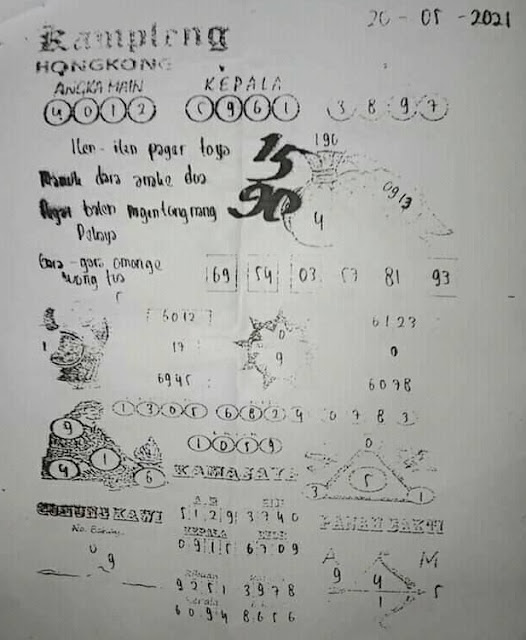 20 - 05 - 2021
Kampleng
HONGKONG
ANGKA MAIN KEPALA
4 0 1 2 5 9 6 1 3 8 9 7
Iler - iler pagar toya 15 190
Manuk dara anake dua 0913
90 4
Gara - gara omonge
wong tua
69 54 03 57 81 93
6012 6123
1 17 0 9 0
6945 6078
1 3 0 5 6 8 2 4 0 7 8 3
9 1 0 5 9 0
4 1 6 KAMAJAYA 3 5 1
GUNUNG KAWI 5 1 2 9 3 7 4 0 PANAH SAKTI
KEPALA EKOR
0 0 9 1 5 6 7 0 9 A M
9 9 4 5
9 2 5 1 3 9 7 8 1
Kepala
6 0 9 4 8 6 5 6